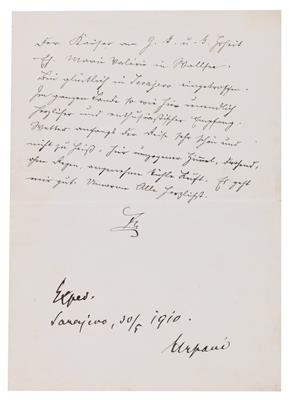 Der Kaiser an I. k. u. k. Hoheit
Eh. Marie Valérie in Wallsee.
Bin glücklich in Sarajevo eingetroffen.
Im ganzen Lande so wie hier unendlich
herzlicher und enthusiastischer Empfang.
Wetter anfangs der Reise sehr schön und
nicht zu heiß, hier umzogener Himmel, drohend,
ohne Regen, angenehme kühle Luft. Es geht
mir gut. Umarme Alle herzlichst.
Exped.
Sarajevo, 30/5 1910.